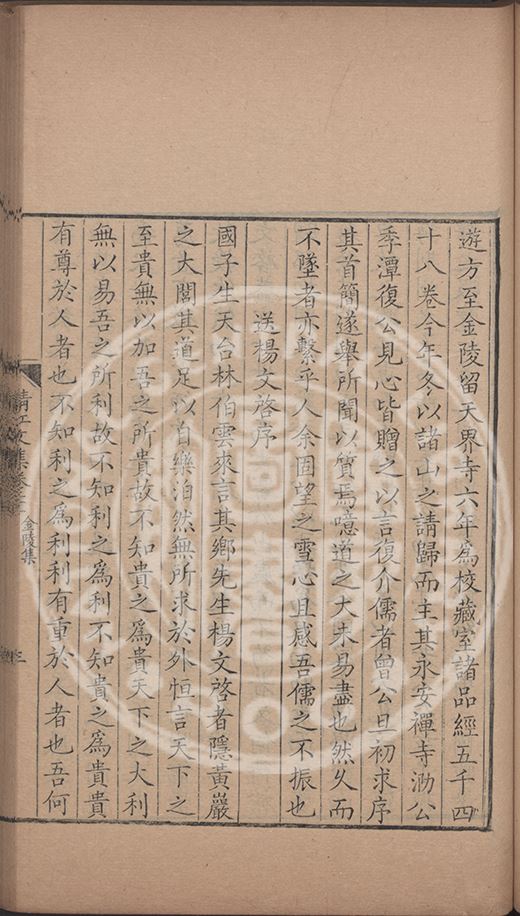 遊方至金陵留天界寺六年爲校藏室諸品經五千四
十八卷今年冬以諸山之請歸而主其永安禪寺泐公
季潭復公見心皆贈之以言復介儒者曾公旦初求序
其首簡遂舉所聞以質焉噫道之大未易盡也然久而
不墜者亦繫乎人余固望之雪心且感吾儒之不振也
送楊文啓序
國子生天台林伯雲來言其鄉先生楊文啓者隱黃巖
之大閭其道足以自樂泊然無所求於外恒言天下之
至貴無以加吾之所貴故不知貴之爲貴天下之大利
無以易吾之所利故不知利之爲利不知貴之爲貴貴
有尊於人者也不知利之爲利利有重於人者也吾何
清江文集卷二十
金陵集
三